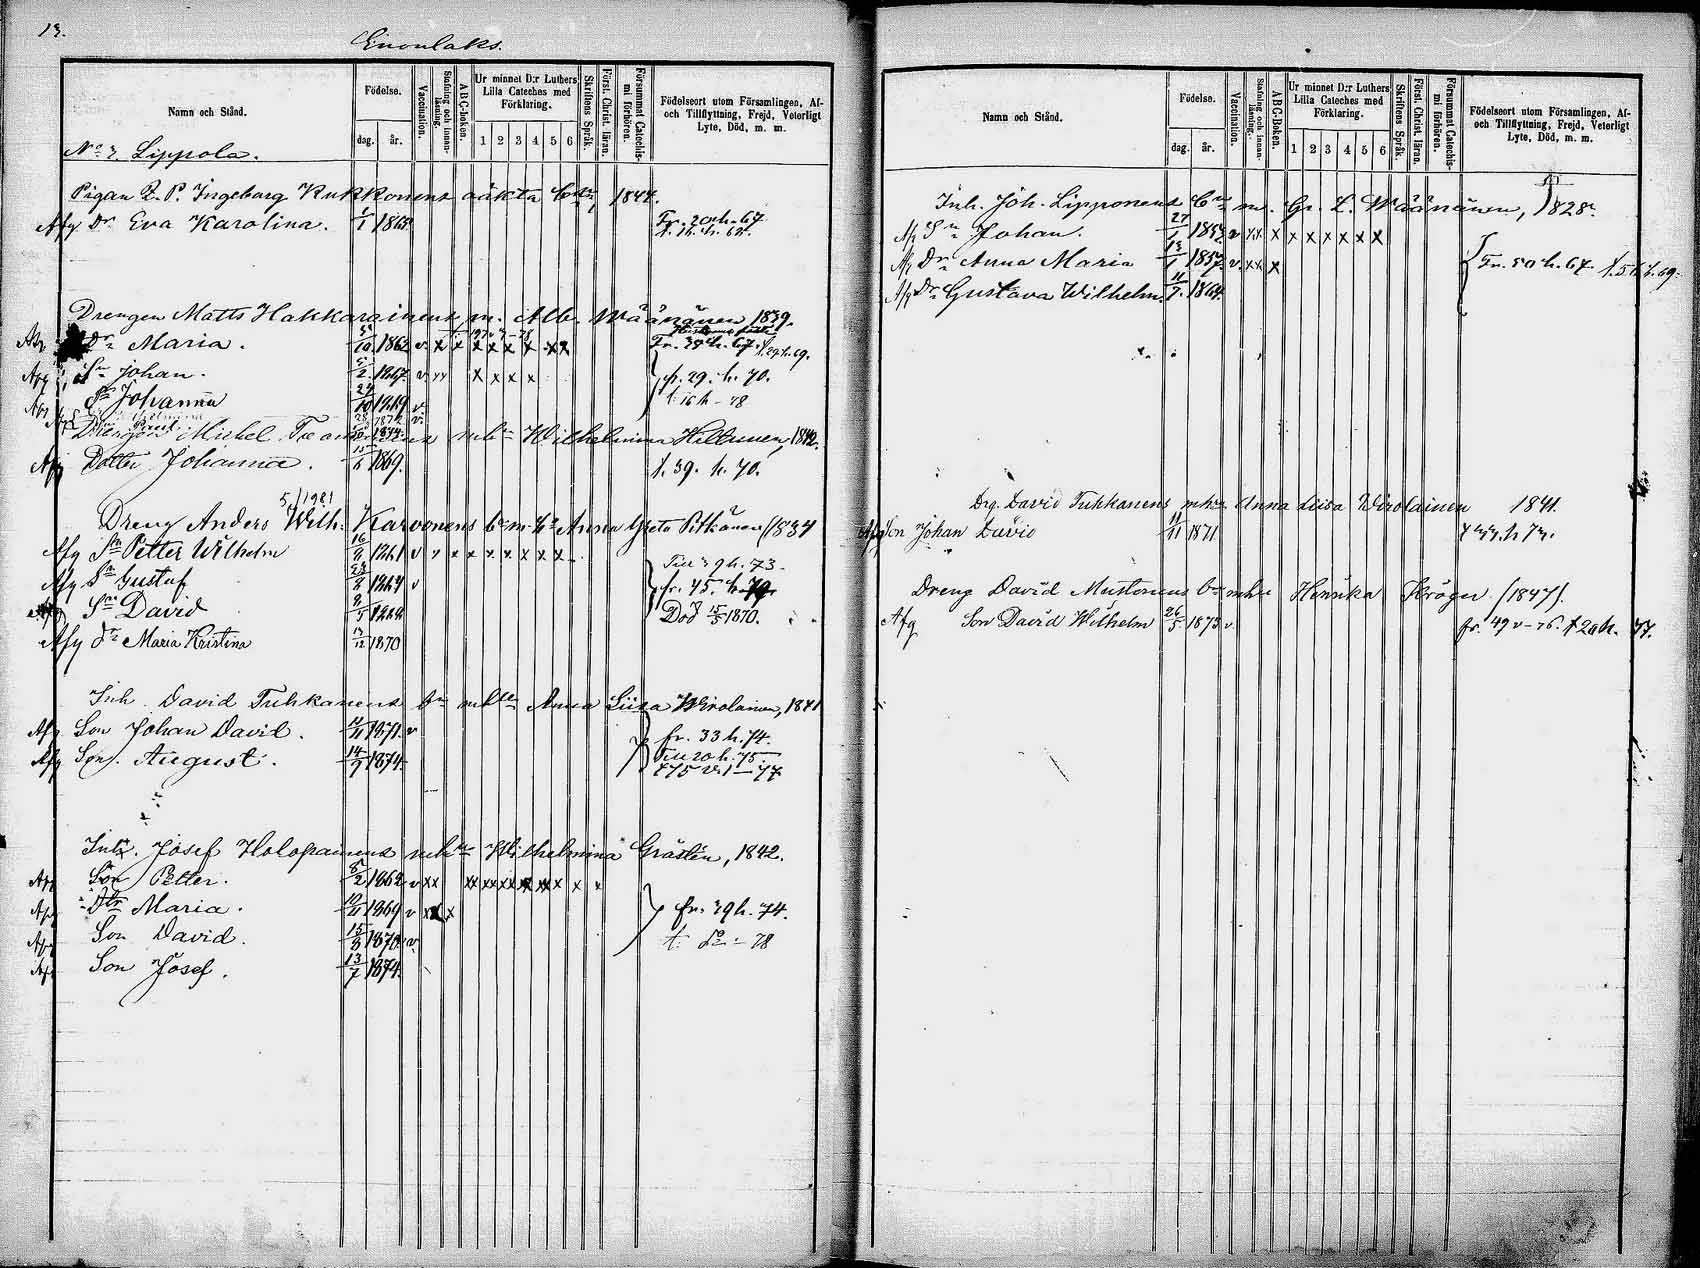 13.
Enonlaks.
Namn och Stånd.
Födelse.
dag.
år.
Vaccination.
Stafning och innanläsning.
A B C-boken.
Ur minnet D:r Luthers Lilla Cateches med Förklaring.
1 2 3 4 5 6
Skriftens Språk.
Först. Christ. läran.
Försummat Catechismi förhören.
Födelseort utom Församlingen, Af- och Tillflyttning, Frejd, Veterligt Lyte, Död, m. m.
Lippola.
Pigan Ingeborg Kukkonens oäkta 1844.
Afg Dr Eva Karolina. 1/1 1865. Fr. 20 h. 67
Drengen Matts Hakkarainens m. Alb. Wäänänen 1839.
Dr Maria. 1862 v x x x x x x x x
Sn Johan. 5/2 1867 v x x x x x x fr. 29. h. 70.
Johanna 24/10 1869 v. t. 16 h - 78
Drengen Michel mhu Wilhelmina Hiltunen, 1842.
Afg Dotter Johanna. 1869. t. 39. h. 70.
5/1981
Dreng Anders Wilh: Karvonens bn m. h. Anna Greta Pitkänen (1834
Afg Sn Petter Wilhelm 16/8 1861 v v x x x x x x x Till 39 h. 73
Afg Sn Gustaf 1864 v fr. 45. h.
Sn David Död 15/5 1870.
Afg Dr Maria Kristina 13/12 1870
Inh David Tuhkanens bn mhu Anna Liisa Wirolainen, 1841
Afg Son Johan David. 11/11 1871. v fr. 33 h. 74.
Afg Son. August. 14/9 1874. Till 20 h. 75.
Inh. Josef Holopainens mhu Wilhelmina Gråstén, 1842.
Afg Son Petter. 8/2 1862 v x x x x x x x x x x x x x
Afg Dtr Maria. 1864 v x x x fr. 39 h. 74.
Afg Son David. 15/8 1870. v. t. Do - 78
Afg Son Josef. 13/7 1874.
Namn och Stånd.
Födelse.
dag.
år.
Vaccination.
Stafning och innanläsning.
A B C-Boken.
Ur minnet D:r Luthers Lilla Cateches med Förklaring.
1 2 3 4 5 6
Skriftens Språk.
Först. Christ. läran.
Försummat Catechismi förhören.
Födelseort utom Församlingen, Af- och Tillflyttning, Frejd, Veterligt Lyte, Död, m. m.
Inh. Joh. Lipponens bn m. Gr. L. Wäänänen, 1828.
Afg Sn Johan. 27/1 1853 v x x x x x x x x x
Afg Dr Anna Maria 13/1 1857. v. x x x Fr. 50 h. 67. t. 51 h. 69.
Afg Dr Gustava Wilhelm. 11/7. 1864.
Drg. David Tuhkanens mhu Anna Liisa Wirolainen 1841.
Afg Son Johan David 11/11 1871
Dreng David Mustonens bn mhu Henrika Kröger (1847).
Afg Son David Wilhelm 26/5. 1873 v. fr. 49 v - 76. t 20 h. 77.